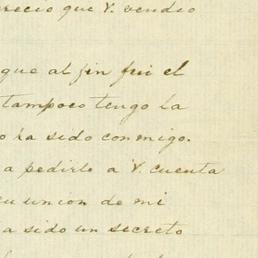 que V. vendio
que al fin fui el
tampoco tengo la
ha sido conmigo.
a pedirle a V. cuenta
union de mi
a sido un secreto